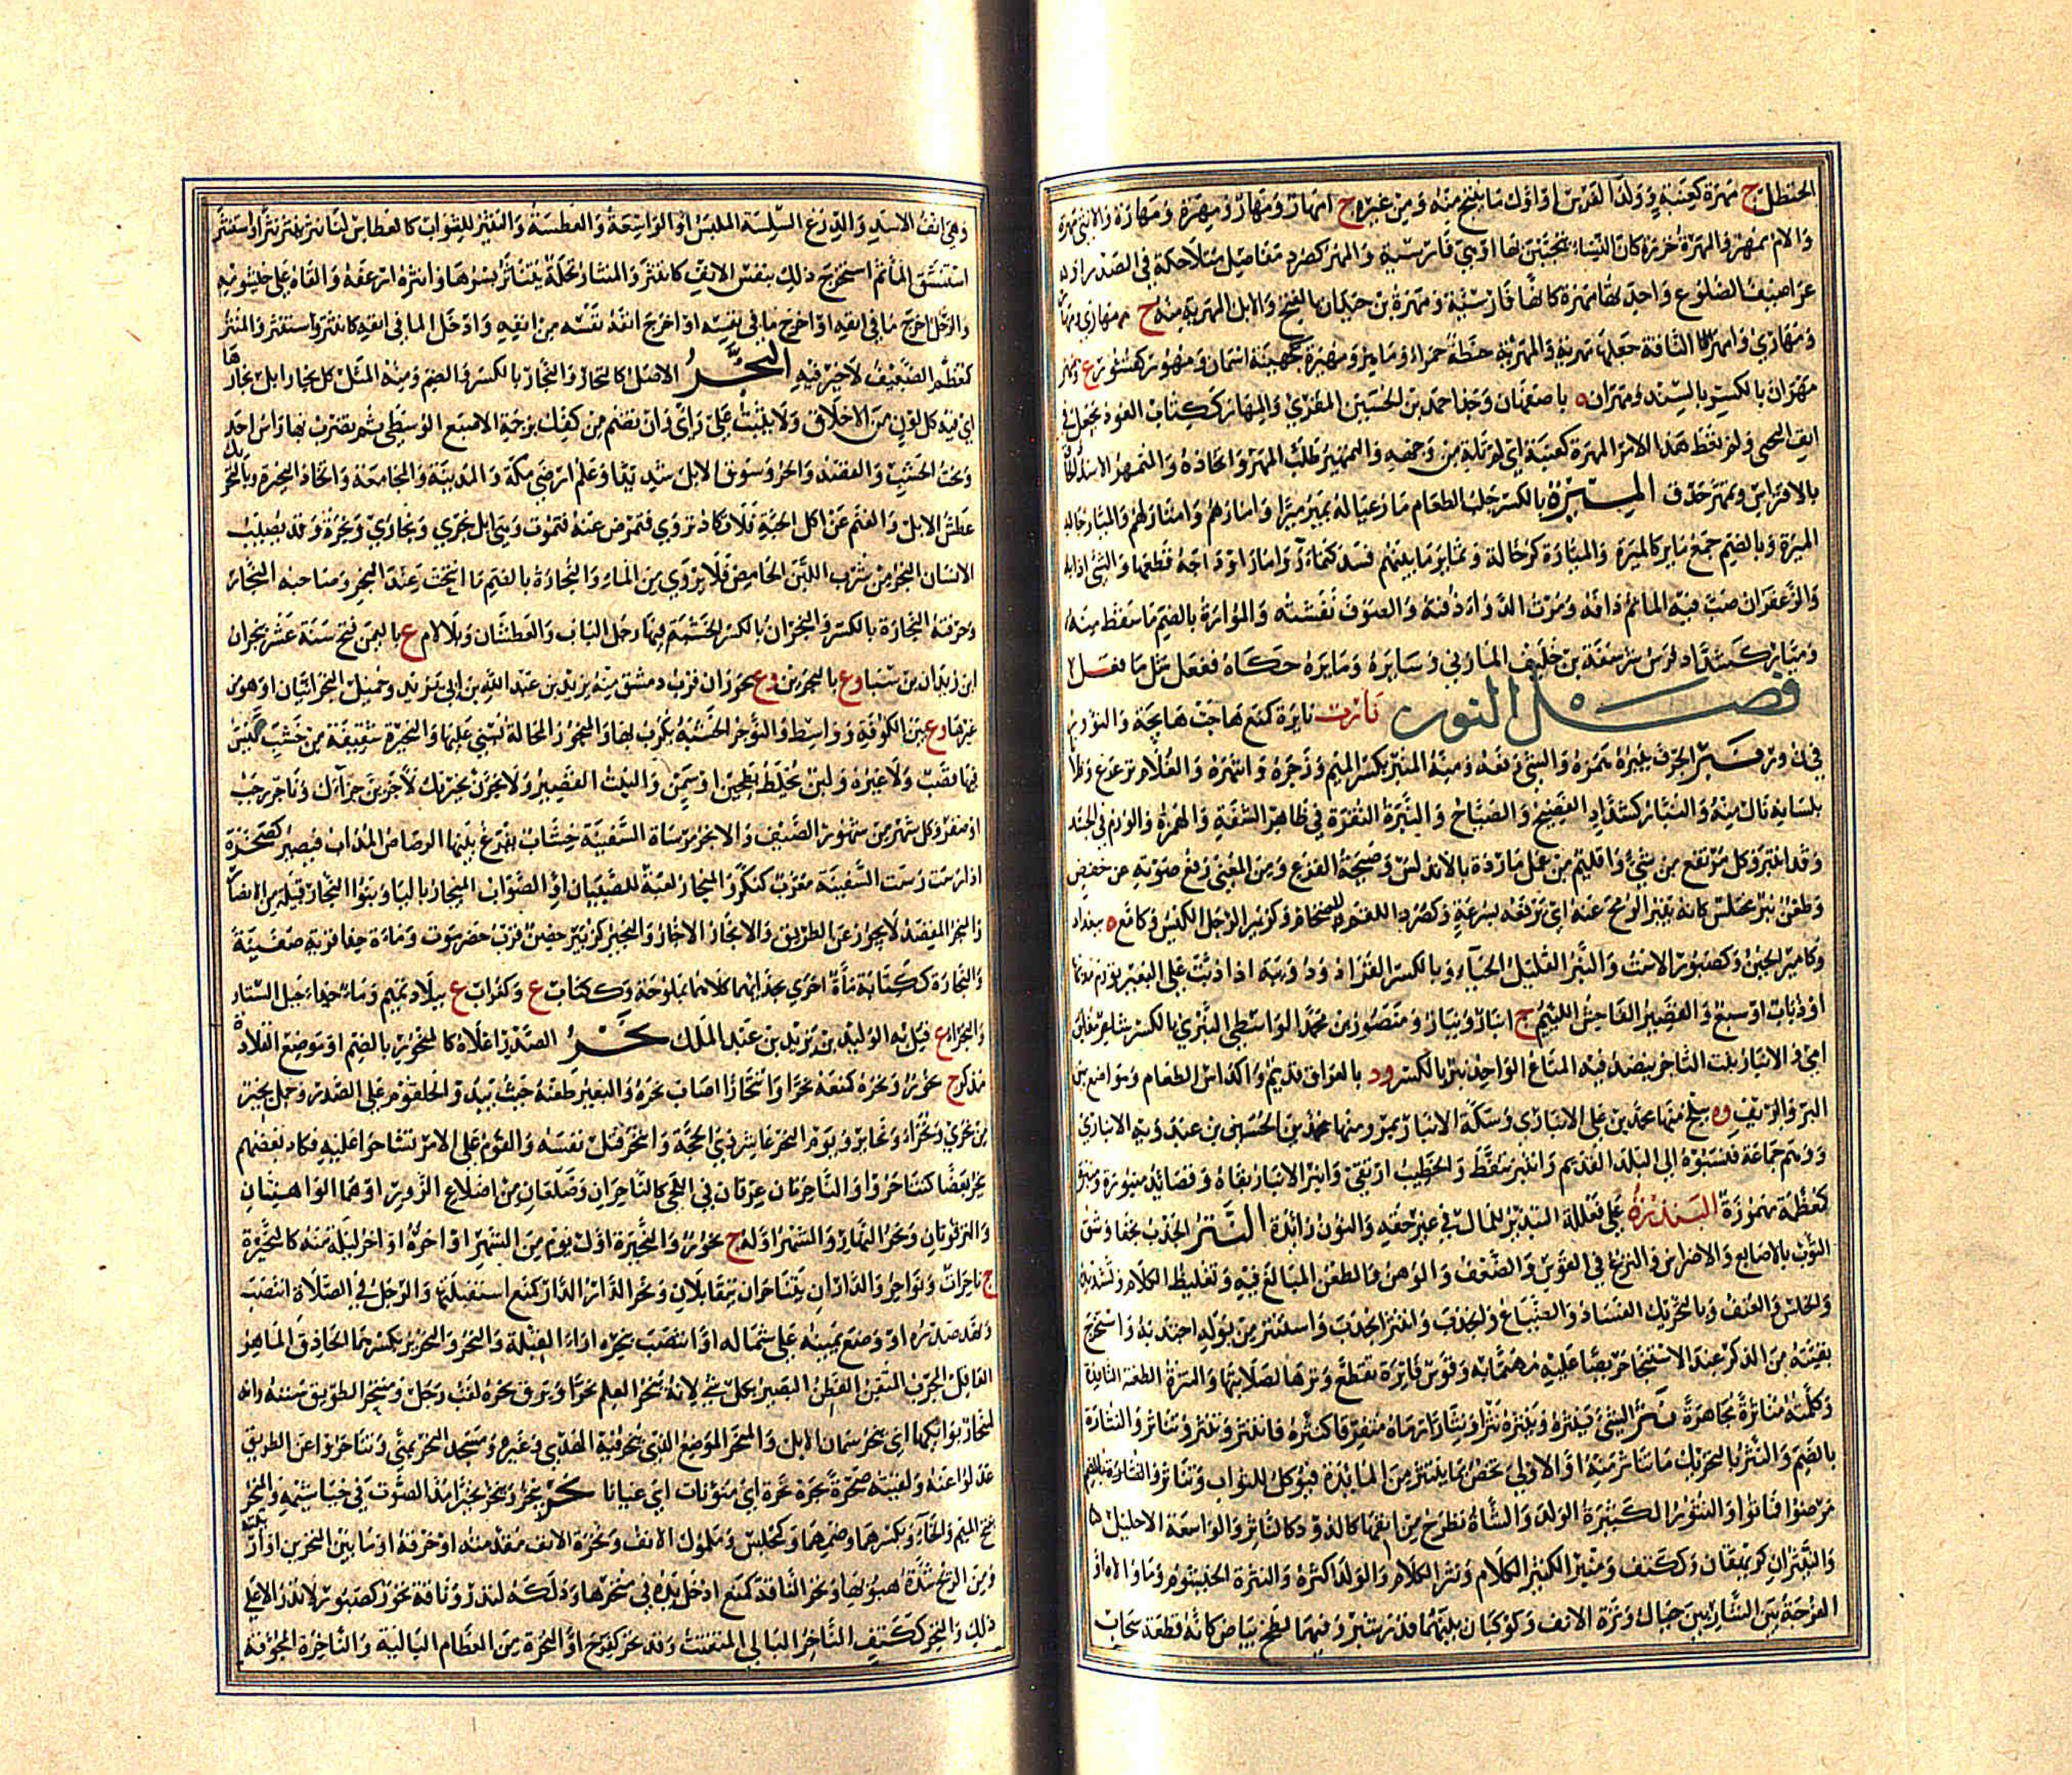 الحنظل ج مهرة كعنبة وولد الفرس او اول ما ينتج منه ومن غيره ج امهار ومهار ومهارة والانثى مهرة
والام ممهر والمهرة خرزة كان النساء يتحببن بها او هي فارسية والمهر كصرد مفاصل متلاحكة في الصدر او
غراضيف الضلوع واحدتها مهرة كانها فارسية ومهرة بن حيدان بالفتح والابل المهرية منه ج مهارى
ومهاري وامهر الناقة جعلها مهرية والمهرية حنطة حمراء وماهر ومهيرة كجهينة اسمان ومهور كقسور ع ونهر
مهران بالكسر بالسند ومهران ه باصفهان وجد احمد بن الحسين المقري والمهار ككتاب العود يجعل في
انف البختي ولم تعط هذا الامر المهرة كعنبة اي لم تاته من وجهه والتمهير طلب المهر واتخاذه والمتمهر الاسد الحاذق
بالافتراس وتمهر حذق الميرة بالكسر جلب الطعام مار عياله يمير ميرا وامارهم وامتار لهم والميار جالب
الميرة وبالضم جمع ماير كالميرة والميارة كرجالة وتماير ما بينهم فسد كتماءر وامار اوداجه قطعها والشيء اذابه
والزعفران صب فيه الماء ثم دافه ومرت الدواء دفته والصوف نفشته والموارة بالضم ما سقط منه
وميار كشداد فرس شرسفة بن خليف المازني وسايره ومايره حكاه ففعل مثل ما فعل
فصل النون نارت نايرة كمنع هاجت هايجة والنؤور
في ن ور نبر الحرف ينبره همزه والشيء رفعه ومنه المنبر بكسر الميم وزجره وانتهره والغلام ترعرع وفلانا
بلسانه نال منه والنبار كشداد الفصيح والصياح والنبرة النقرة في ظاهر الشفة والهمزة والورم في الجسد
وقد انتبر وكل مرتفع من شيء واقليم من عمل ماردة بالاندلس وصيحة الفزع ومن المغني رفع صوته عن خفض
وطعن نبر مختلس كانه ينبر الرمح عنه اي يرفعه بسرعة وكصرد اللقم الضخام وكزبير الرجل الكيس وكامع ه ببغداد
وكامير الجبن وكصبور الاست والنبر القليل الحياء وبالكسر القراد ودويبة اذا دبت على البعير تورم مدبها
او ذباب او سبع والقصير الفاحش اللئيم ج انبار ونبار ومنصور بن محمد الواسطي النبري بالكسر شاعر مفلق
امي والانبار بيت التاجر ينضد فيه المتاع الواحد نبر بالكسر ود بالعراق قديم واكداس الطعام ومواضع بين
البر والريف وه ببلخ منها محمد بن علي الانباري وسكة الانبار بمرو منها محمد بن الحسين بن عبدويه الانباري
ووهم جماعة فنسبوه الى البلد القديم وانتبر تنفط والخطيب ارتقى وانبر الانبار بناه وقصائد منبورة ومنبرة
كمعظمة مهموزة النبذرة على فنعلة التبذير للمال في غير حقه والنون زائدة النتر الجذب بجفاء وشق
الثوب بالاصابع والاضراس والنزع في القوس والضعف والوهن والطعن المبالغ فيه وتغليظ الكلام وتشديده
والخلس والعنف وبالتحريك الفساد والضياع وانجذب وانتتر انجذب واستنتر من بوله اجتذبه واستخرج
بقيته من الذكر عند الاستنجاء حريصا عليه مهتما به وقوس ناترة تقطع وترها لصلابتها والنترة الطعنة النافذة
وكلمته مناترة مجاهرة نثر الشيء ينثره وينثره نثرا ونثارا رماه متفرقا كنثره فانتثر وتنثر وتناثر والنثارة
بالضم والنثر بالتحريك ما تناثر منه او الاولى تخص بما ينتثر من المايدة فيوكل للثواب وتناثر
مرضوا فماتوا والنثور الكثيرة الولد والشاة تطرح من انفها كالدود كالناثر والواسعة الاحليل
والنيثران كريهقان وككتف ومنبر الكثير الكلام ونثر الكلام والولد اكثره والنثرة الخيشوم وما والاه او
الفرجة بين الشاربين حيال وترة الانف وكوكبان بينهما قدر شبر وفيهما لطخ بياض كانه قطعة سحاب
وهي انف الاسد والدرع السلسة الملبس او الواسعة والعطسة والنثير للدواب كالعطاس لنا نثر ينثر نثيرا واستنثر
استنشق الماء ثم استخرج ذلك بنفس الانف كانتثر والمنثار نخلة يتناثر بسرها وانثره ارعفه والقاه على خيشومه
والرجل اخرج ما في انفه او اخرج ما في نفسه او اخرج نفسه من انفه وادخل الماء في انفه كانتثر واستنثر والمنثر
كمعظم الضعيف لا خير فيه النجر الاصل كالنجار والنجار بالكسر والضم ومنه المثل كل نجار ابل نجارها
اي فيه كل لون من الاخلاق ولا يثبت على راي وان تضم من كفك برجمة الاصبع الوسطى ثم تضرب بها راس احد
ونحت الخشب والقصد والحر وسوق الابل شديدا وعلم ارضي مكة والمدينة والمجامعة واتخاذ النجيرة وبالتحريك
عطش الابل والغنم عن اكل الحبة فلا تكاد تروى فتمرض عنه فتموت وهي ابل نجرى ونجارى ونجرة وقد يصيب
الانسان النجر من شرب اللبن الحامض فلا يروى من الماء والنجارة بالضم ما انتحت عند النجر وصاحبه النجار
وحرفته النجارة بالكسر والنجران بالكسر الخشبة فيها رجل الباب والعطشان وبلا لام ع باليمن فتح سنة عشر بنجران
ابن زيدان بن سبا وع بالبحرين وع بحوران قرب دمشق منه يزيد بن عبد الله بن ابي يزيد وحميل النجرانيان او هو من
غيرها وع بين الكوفة وواسط والنوجر الخشبة يكرب بها والنجر المحالة يسنى عليها والنجيرة سقيفة من خشب ليس
فيها قصب ولا غيره ولبن يخلط بطحين او سمن والنبت القصير ولانجرن نجيرتك لاجزين جزاءك وناجر رجب
او صفر وكل شهر من شهور الصيف والانجر مرساة السفينة خشاب يفرغ بينها الرصاص المذاب فيصير كصخرة
اذا رست رست السفينة معرب لنكر والمنجار لعبة للصبيان او الصواب الميجار بالياء وبنو النجار قبيلة من الانصار
والنجر المقصد لا يحور عن الطريق والانجار الاجار والنجير كزبير حصن قرب حضرموت وماءة حذاء قرية صفينة
والنجارة ككتابة ماءة اخرى بحذائهما كلاهما بملوحة وككتاب ع وكغراب ع ببلاد تميم وماء حذاء جبل الستار
والنجراء ع قتل به الوليد بن يزيد بن عبد الملك نحر الصدر اعلاه كالنحور بالضم او موضع القلادة
مذكر ج نحور ونحره كمنعه نحرا وتنحارا اصاب نحره والبعير طعنه حيث يبدو الحلقوم على الصدر وجمل نحير
من نحرى ونحراء ونحاير ويوم النحر عاشر ذي الحجة وانتحر قتل نفسه والقوم على الامر تشاحوا عليه فكاد بعضهم
ينحر بعضا كتناحروا والناحرتان عرقان في اللحى كالناحران وضلعان من اضلاع الزور او هما الواهنتان
والترقوتان ونحر النهار والشهر اوله ج نحور والنحيرة اول يوم من الشهر او اخره او اخر ليلة منه كالنحيرة
ج ناحرات ونواحر والداران يتناحران يتقابلان ونحر الدار الدار كمنع استقبلتها والرجل في الصلاة انتصب
ونهد صدره او وضع يمينه على شماله او انتصب بنحره ازاء القبلة والنحر والنحرير بكسرهما الحاذق الماهر
العاقل المجرب المتقن الفطن البصير بكل شيء لانه ينحر العلم نحرا وبرق نحره لقب رجل ومنحر الطريق سننه وانه
لمنحار بوائكها اي ينحر سمان الابل والمنحر الموضع الذي ينحر فيه الهدي وغيره ومسجد النحر بمنى وتناحروا عن الطريق
عدلوا عنه ولقيته صحرة بحرة نحرة اي منونات اي عيانا نخر ينخر وينخر نخيرا مد الصوت في خياشيمه والمنخر
بفتح الميم والخاء وبكسرهما وضمهما وكمجلس وملمول الانف ونخرة الانف مقدمته او خرقه او ما بين المنخرين او ارنبته
ومن الريح شدة هبوبها ونخر الناقة كمنع ادخل يده في منخرها ودلكه لتدر وناقة نخور كصبور لا تدر الا على
ذلك والنخر ككتف والناخر البالي المتفتت وقد نخر كفرح او النخرة من العظام البالية والناخرة المجوفة